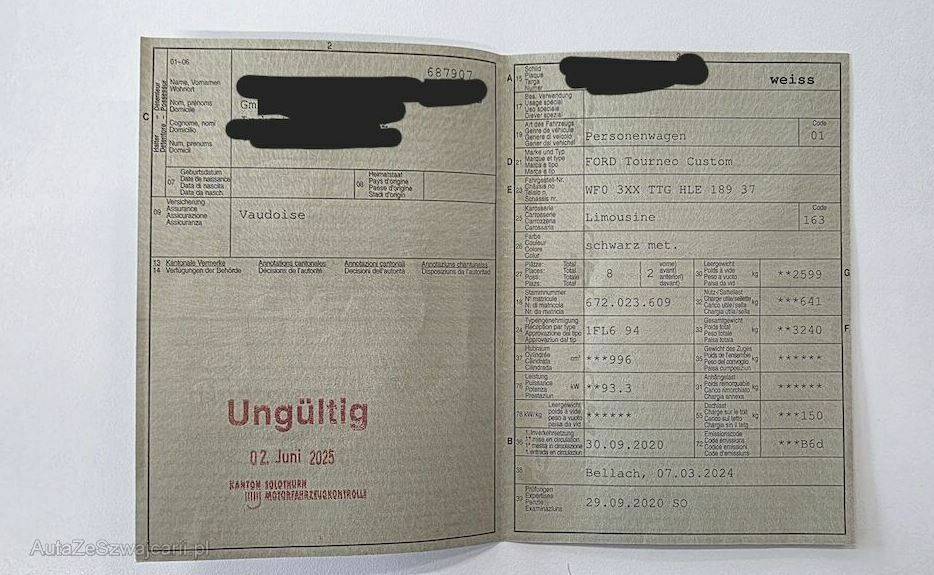 2
01-06
Name, Vornamen
Wohnort
Nom, prénoms
Domicile
Cognome, nomi
Domicilio
Num, prenoms
Domicil
C
Halter - Détenteur
Detentore - Possessur
687907
Gm
07
Geburtsdatum
Date de naissance
Data di nascita
Data da nasch.
08
Heimatstaat
Pays d'origine
Paese d'origine
Stadi d'origin
09
Versicherung
Assurance
Assicurazione
Assicuranza
Vaudoise
13 Kantonale Vermerke Annotations cantonales Annotazioni cantonali Annotaziuns chantunalas
14 Verfügungen der Behörde Décisions de l'autorité Decisioni dell'autorità Disposiziuns da l'autoritad
Ungültig
02. Juni 2025
KANTON SOLOTHURN
MOTORFAHRZEUGKONTROLLE
A 15
Schild
Plaque
Targa
Numer
weiss
17
Bes. Verwendung
Usage spécial
Uso speciale
Diever spezial
19
Art des Fahrzeugs
Genre de véhicule
Genere di veicolo
Gener dal vehichel
Personenwagen
Code
01
D 21
Marke und Typ
Marque et type
Marca e tipo
Marca e tip
FORD Tourneo Custom
E 23
Fahrgestell-Nr.
Châssis no
Telaio n.
Schassis nr.
WF0 3XX TTG HLE 189 37
25
Karosserie
Carrosserie
Carrozzeria
Carossaria
Limousine
Code
163
26
Farbe
Couleur
Colore
Colur
schwarz met.
27
Plätze: Total
Places: Total
Posti: Totale
Plazs: Total
8
2
vorne)
avant)
anteriori)
davant)
30
Leergewicht
Poids à vide
Peso a vuoto
Paisa da vid
kg
**2599
G
18
Stammnummer
N° matricule
N. di matricola
Nr. da matricla
672.023.609
32
Nutz-/Sattellast
Charge utile/sellette
Carico utile/sella
Chargia utila/sella
kg
***641
24
Typengenehmigung
Réception par type
Approvazione del tipo
Approvaziun dal tip
1FL6 94
33
Gesamtgewicht
Poids total
Peso totale
Paisa totala
kg
**3240
F
37
Hubraum
Cylindrée
Cilindrata
Cilindrada
cm³
***996
35
Gewicht des Zuges
Poids de l'ensemble
Peso del convoglio
Paisa cumposiziun
kg
******
76
Leistung
Puissance
Potenza
Prestaziun
kW
**93.3
31
Anhängelast
Poids remorquable
Carico rimorchiato
Chargia annexa
kg
******
78 kW/kg
Leergewicht
poids à vide
peso a vuoto
paisa da vid
******
55
Dachlast
Charge sur le toit
Carico sul tetto
Chargia sin il tetg
kg
***150
B 36
1. Inverkehrsetzung
1re mise en circulation
1a messa in circolazione
1. entrada en circulaziun
30.09.2020
72
Emissionscode
Code émissions
Codice emissioni
Code d'emissiuns
***B6d
38
Bellach, 07.03.2024
39
Prüfungen
Expertises
Perizie
Examinaziuns
29.09.2020 SO
AutaZeSzwajcarii.pl